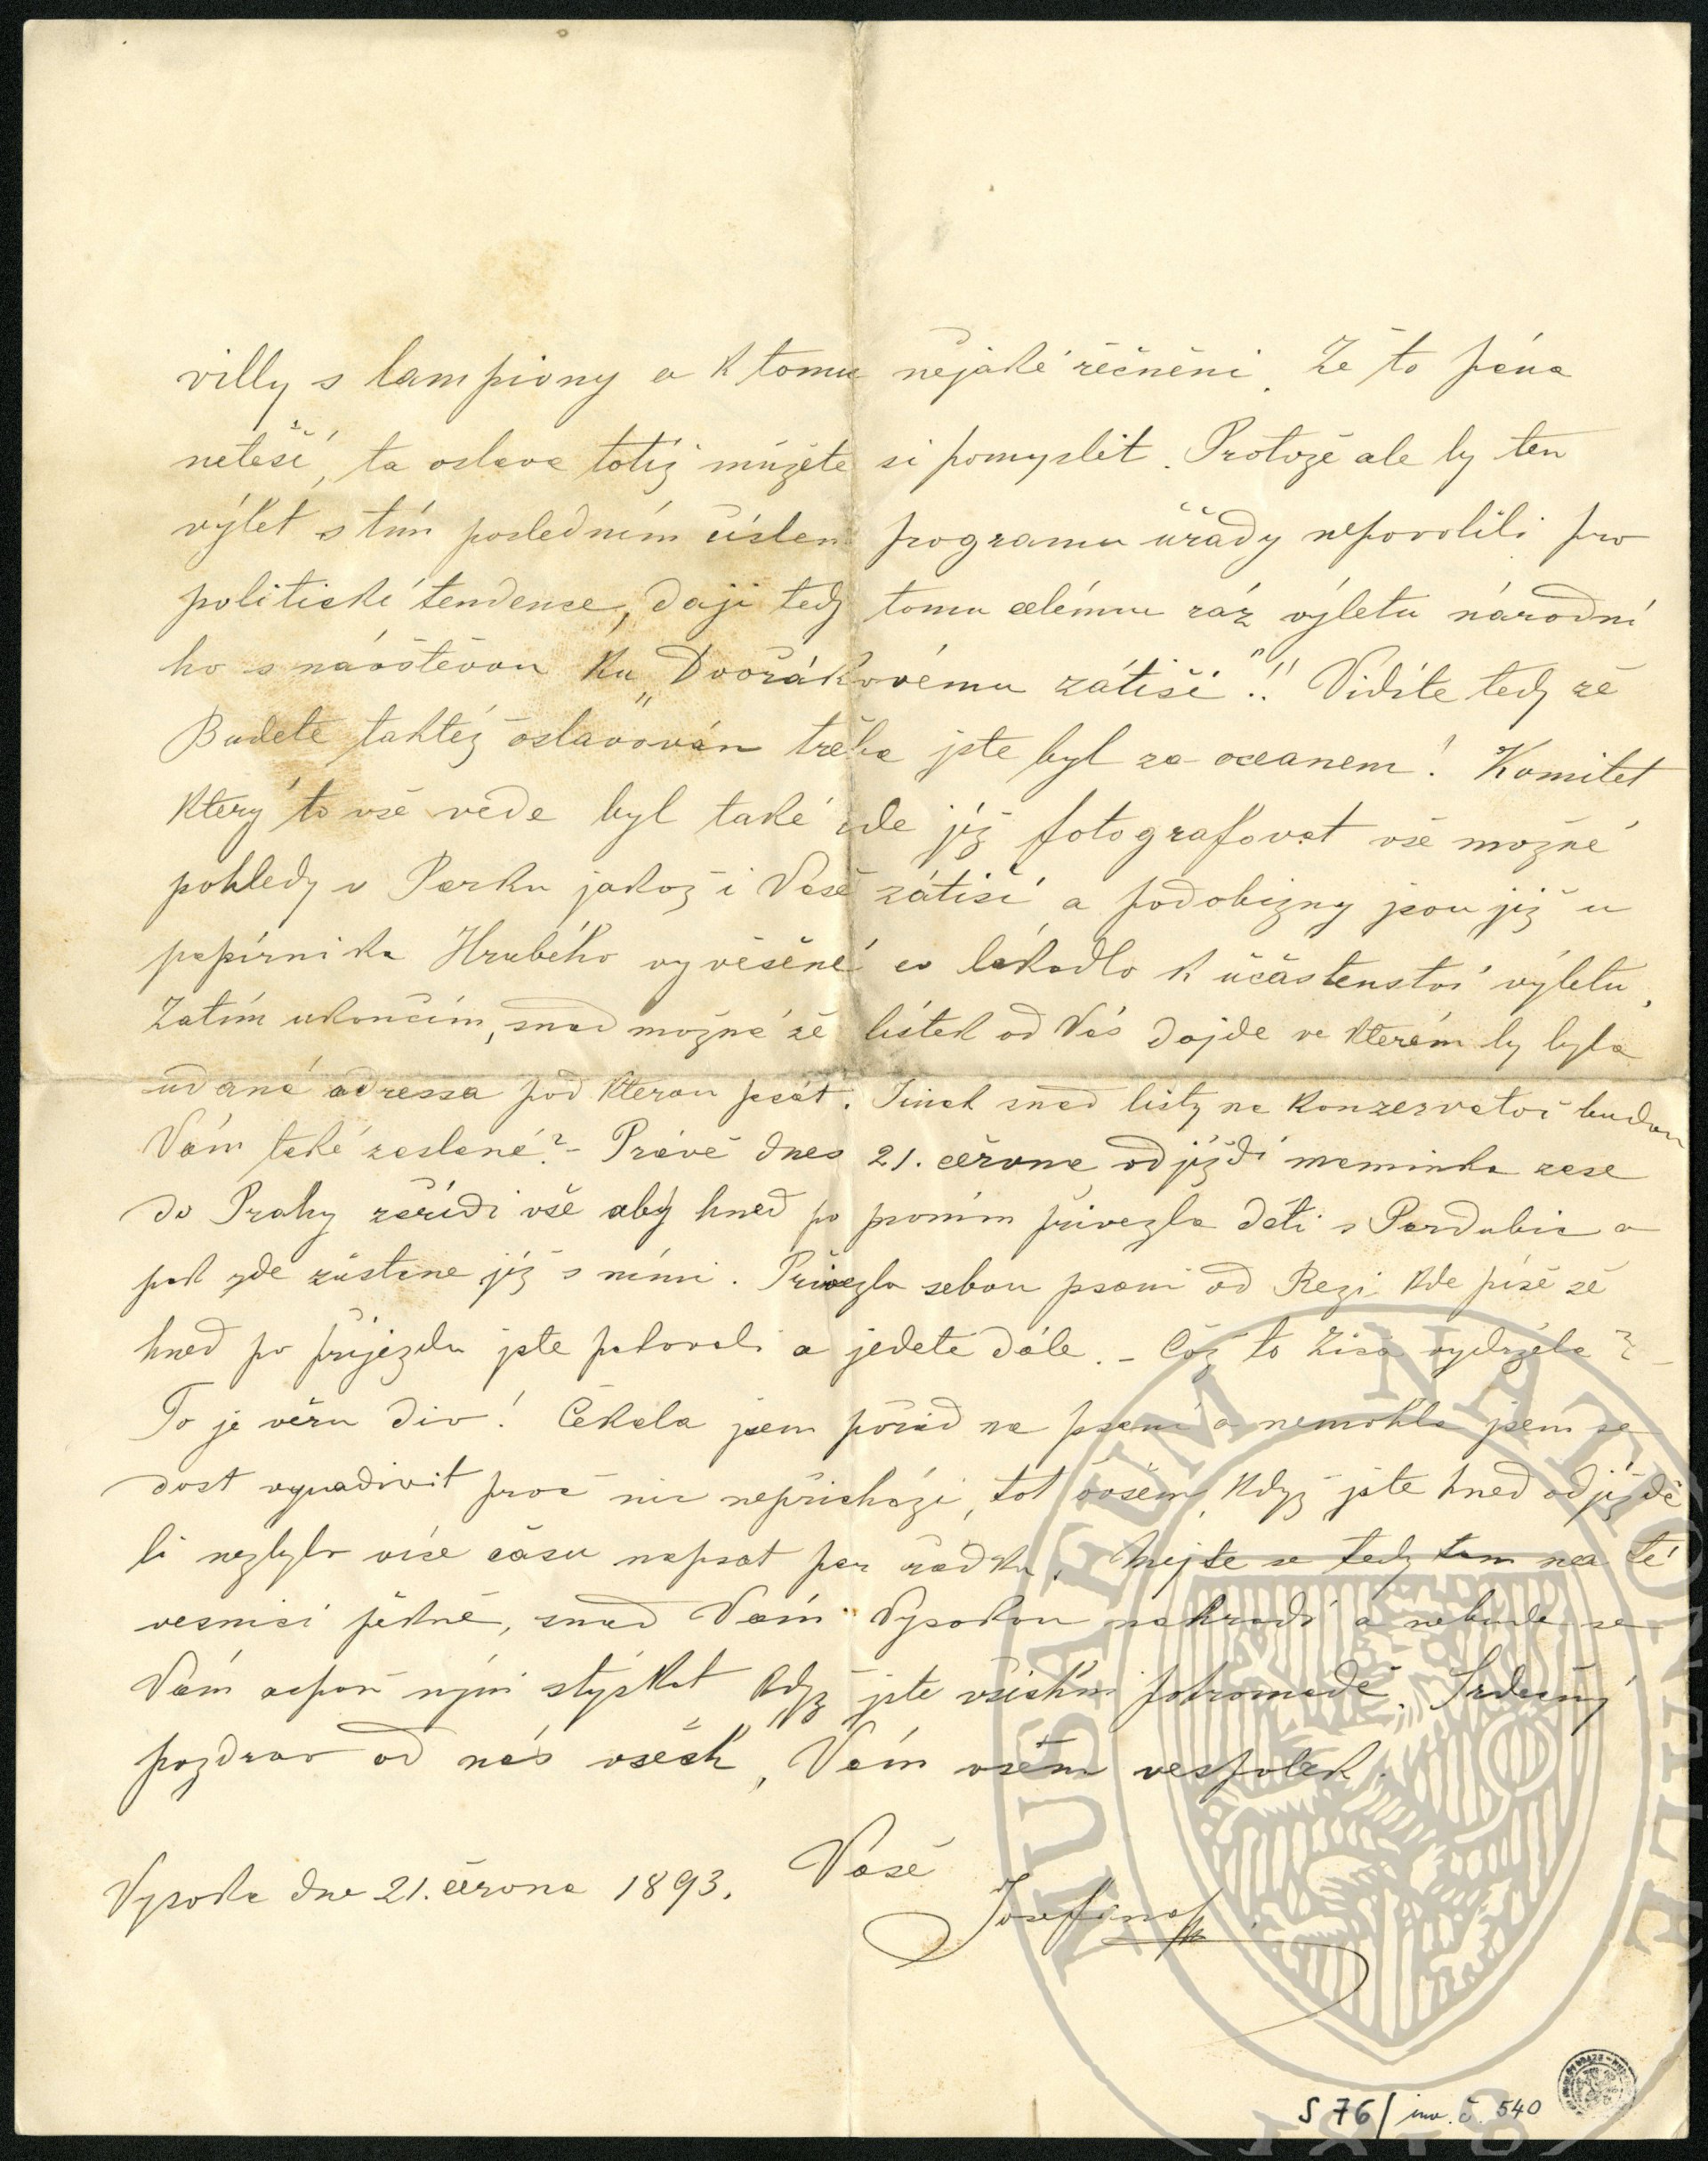 villy s lampiony a k tomu nějaké řěčnění. Že to pána
netěší, ta oslava totiž můžete si pomyslit. Protože ale by ten
výlet s tím posledním číslem programu úřady nepovolili pro
politické tendence, dají tedy tomu celému ráz výletu národní
ho s návštěvou ku „Dvořákovému zátiší“!! Vidíte tedy že
Budete taktéž oslavován třeba jste byl za oceanem! Komitét
který to vše vede byl také zde již fotografovat vše možné
pohledy v Parku jakož i Vaše zátiší a podobizny jsou již u
papírníka Hrubého vyvěšené co lákadlo k účastenství výletu.
Zatím ukončím, snad možná že lístek od Vás dojde ve kterém by byla
udaná adressa pod kterou psát. Jinak snad listy na konzervatoř budou
Vám také zaslané? – Právě dnes 21. června odjíždí maminka zase
do Prahy zařídi vše aby hned po prvním přivezla děti s Pardubic a
pak zde zůstane již s nimi. Přivezla sebou psaní od Rezi kde píše že
hned po příjezdu jste pakovali a jedete dále. – Což to Zisa vydržela? –
To je věru div! Čekala jsem pořád na psaní a nemohla jsem se
dost vynadivit proč nic nepřichází, toť ovšem když jste hned odjíždě
li nezbylo více času napsat par řádků. Mějte se tedy tam na té
vesnici pěkně, snad Vám Vysokou nahradí a nebude se
Vám aspoň nyní stýskat když jste všichni pohromadě. Srdečný
pozdrav od nás všech, Vám všem vespolek.
Vaše
Vysoka dne 21. června 1893.
Josefina
S 76/ inv. č. 540
MUSAEUM NATIONALE
1818